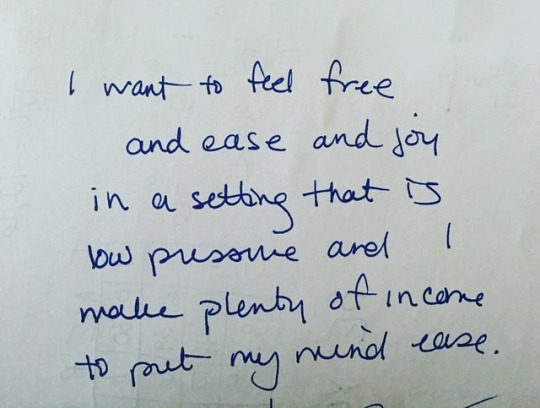 I want to feel free
and ease and joy
in a setting that is
low pressure and I
make plenty of income
to put my mind ease.